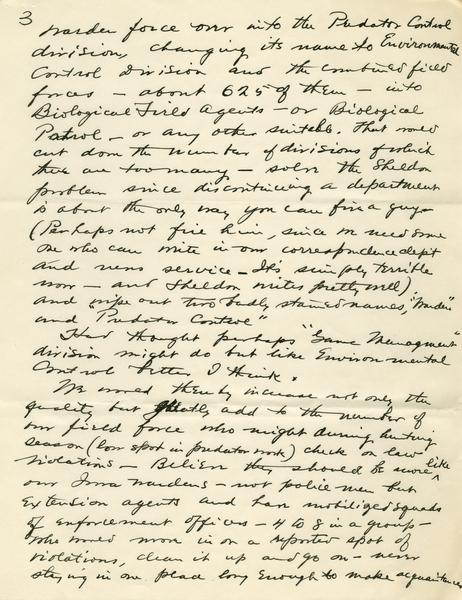 3
warden force over into the Predator Control
division, changing its name to Environmental
Control Division and the combined field
forces - about 625 of them - into
Biological Field Agents - or Biological
Patrol - or any other suitable. That would
cut down the number of divisions of which
there are too many - solve the Sheldon
problem since discontinuing a department
is about the only way you can fire a guy -
(Perhaps not fire him, since we need some
one who can write in our correspondence dept
and news service - It's simply terrible
now - and Sheldon writes pretty well),
and wipe out two badly stained names, "Warden"
and "Predator Control"
Had thought perhaps "Game Managment"
division might do but like Environmental
Control better I think.
We would thereby increase not only the
quality but greatly add to the number of
our field force who might during hunting
season (low spot in predator work) check on law
violations - Believe they should be more like
our Iowa wardens - not police men but
Extension agents and have mobilized squads
of enforcement officers - 4 to 8 in a group -
who would move in on a reported spot of
violations, clean it up and go on - never
staying in one place long enough to make acquaintances